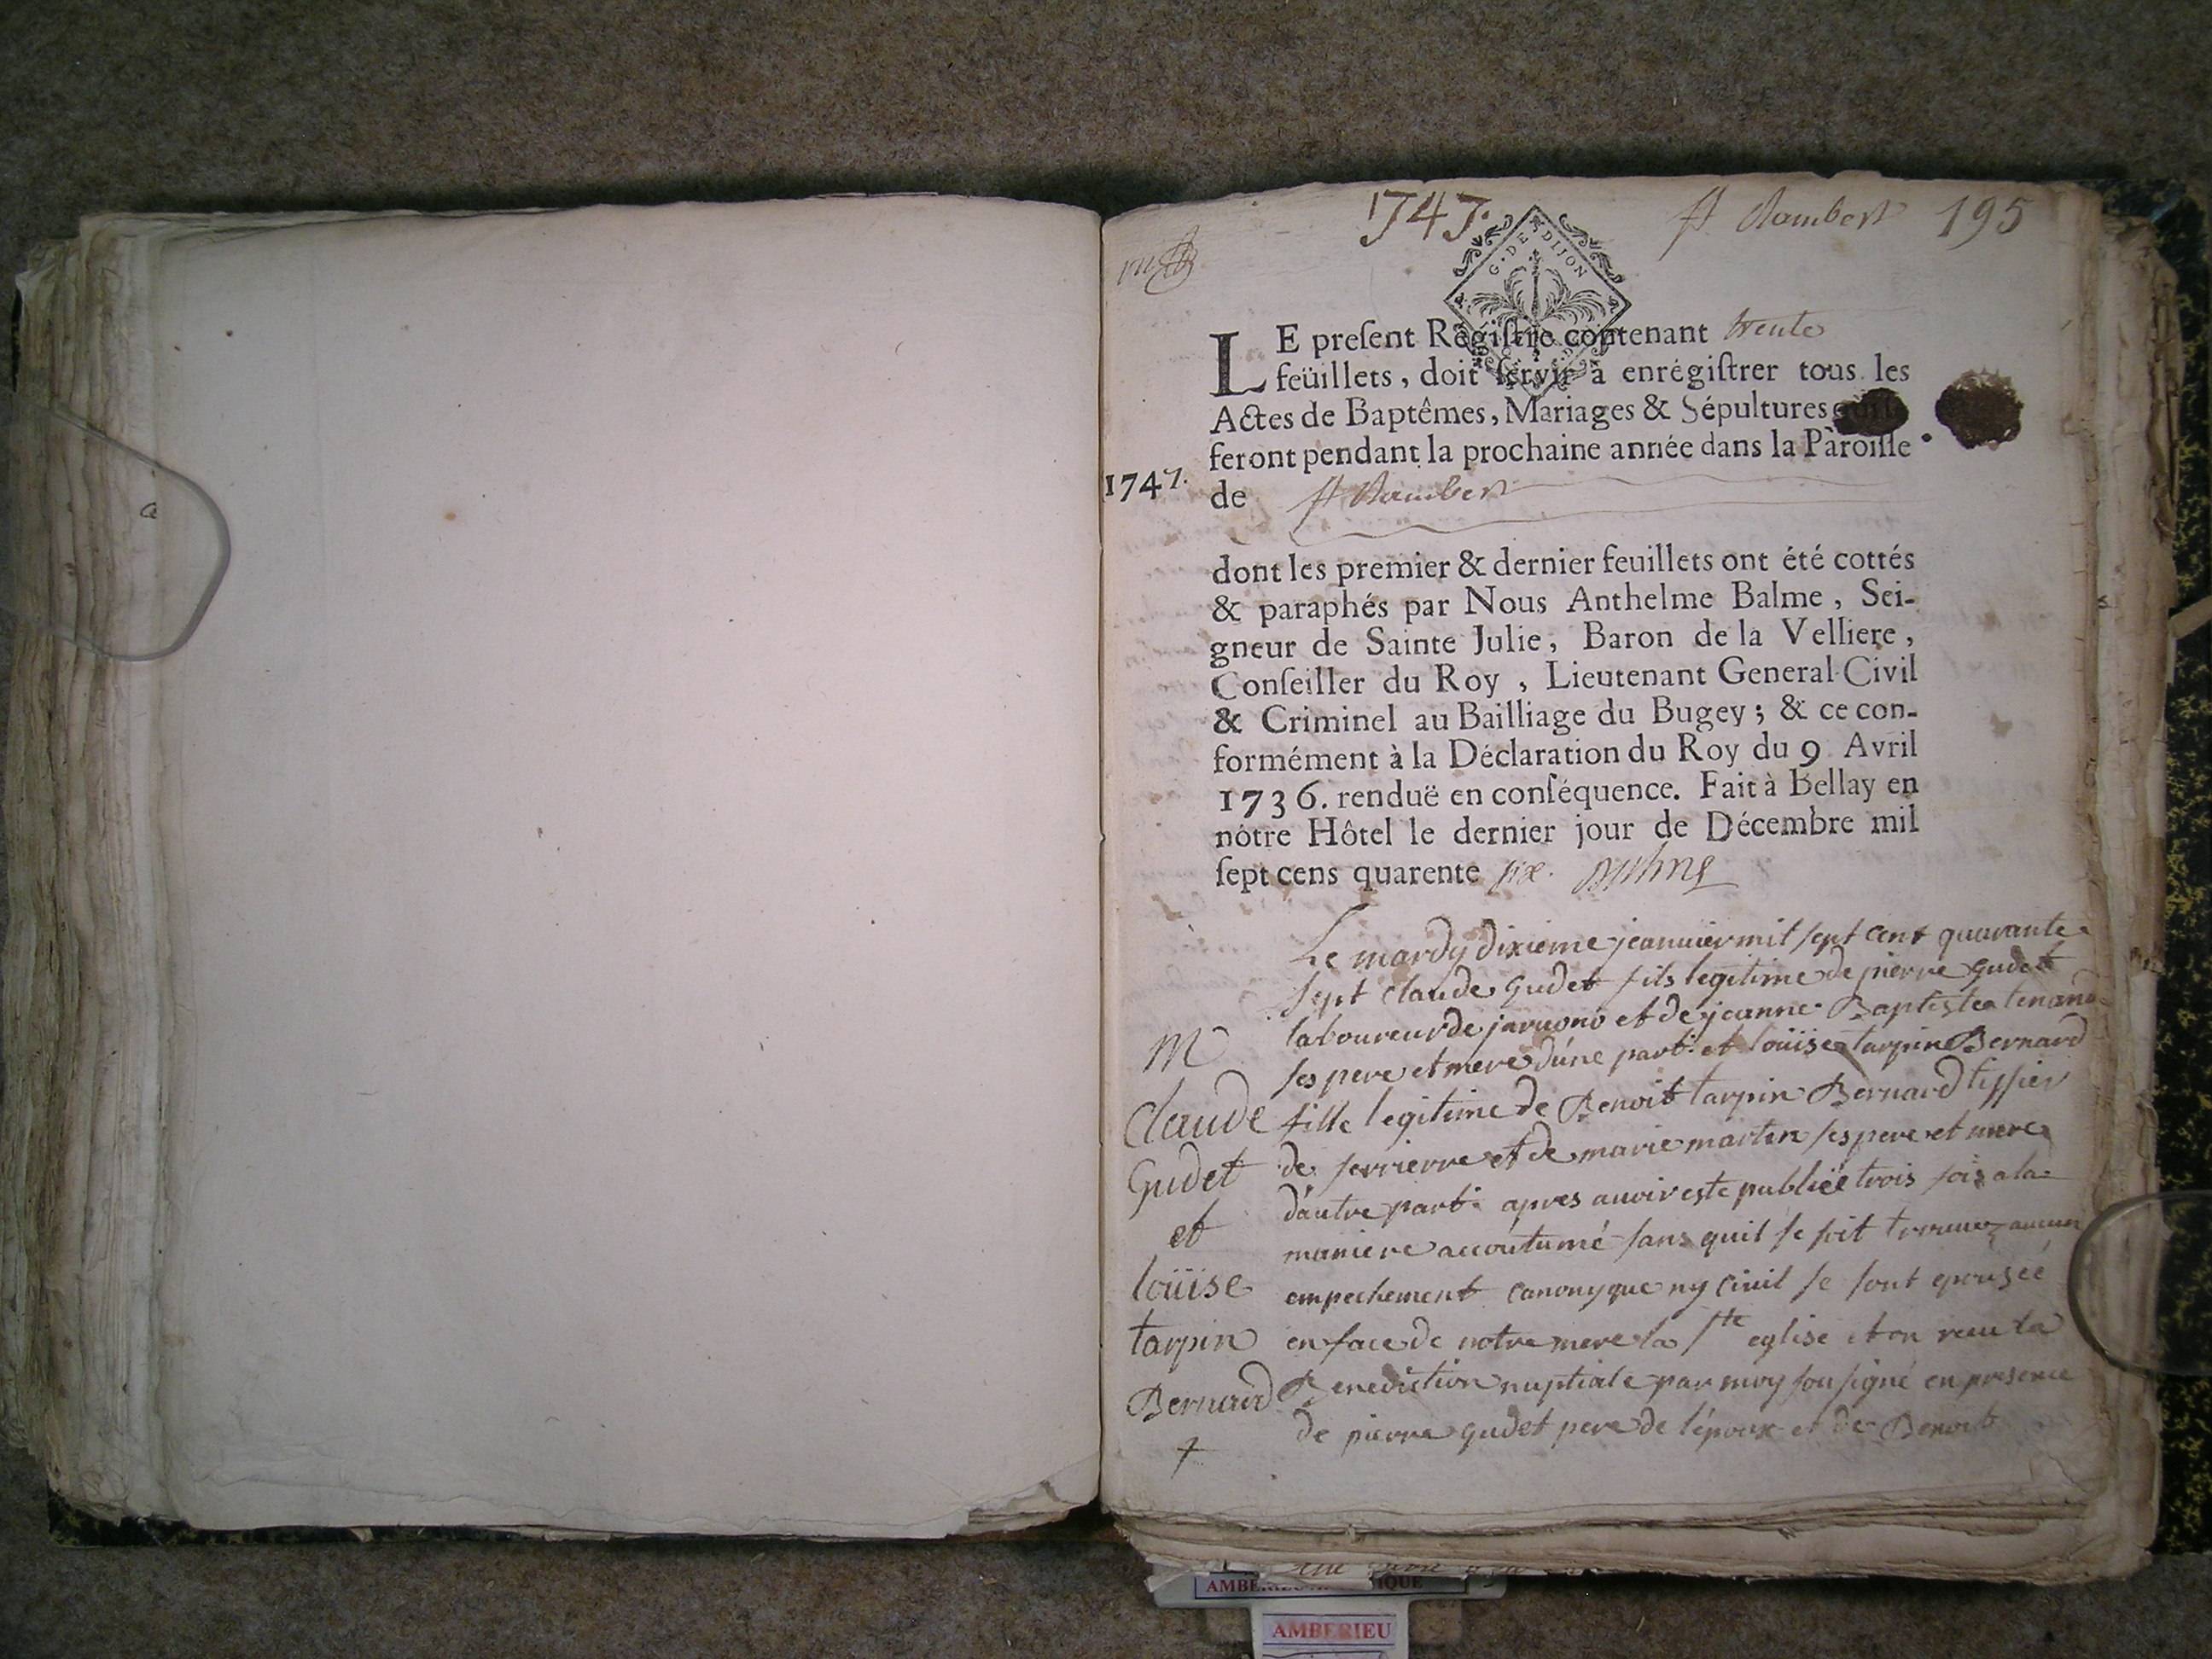 1747.
St Rambert 195
G. DE DIJON
LE preſent Régiſtre contenant trente
feüillets, doit ſervir à enrégiſtrer tous les
Actes de Baptêmes, Mariages & Sépultures
feront pendant la prochaine année dans la Paroiſſe
1747.
de St Rambert
dont les premier & dernier feuillets ont été cottés
& paraphés par Nous Anthelme Balme, Sei-
gneur de Sainte Julie, Baron de la Velliere,
Conſeiller du Roy, Lieutenant General Civil
& Criminel au Bailliage du Bugey; & ce con-
formément à la Déclaration du Roy du 9 Avril
1736. renduë en conſéquence. Fait à Bellay en
nôtre Hôtel le dernier jour de Décembre mil
ſept cens quarente six.
Le mardy dixieme jeanuier mil sept cent quarante
sept claude Gudet fils legitime de pierre Gudet
laboureur de et de jeanne Baptiste tenand
ses pere et mere d'une part et loüise tarpin Bernard
fille legitime de Benoit tarpin Bernard tissier
de serrierre et de marie martin ses pere et mere
d'autre part apres auoir este publiëe trois fois a la
maniere accoutumé sans quil se soit trouuez aucun
empechement canonyque ny ciuil se sont epousée
en face de notre mere la Ste eglise et on receu la
Benediction nuptiale par moy sousigné en presence
de pierre gudet pere de l'époux et de Benoit
M
Claude
Gudet
et
loüise
tarpin
Bernard
AMBERIEU